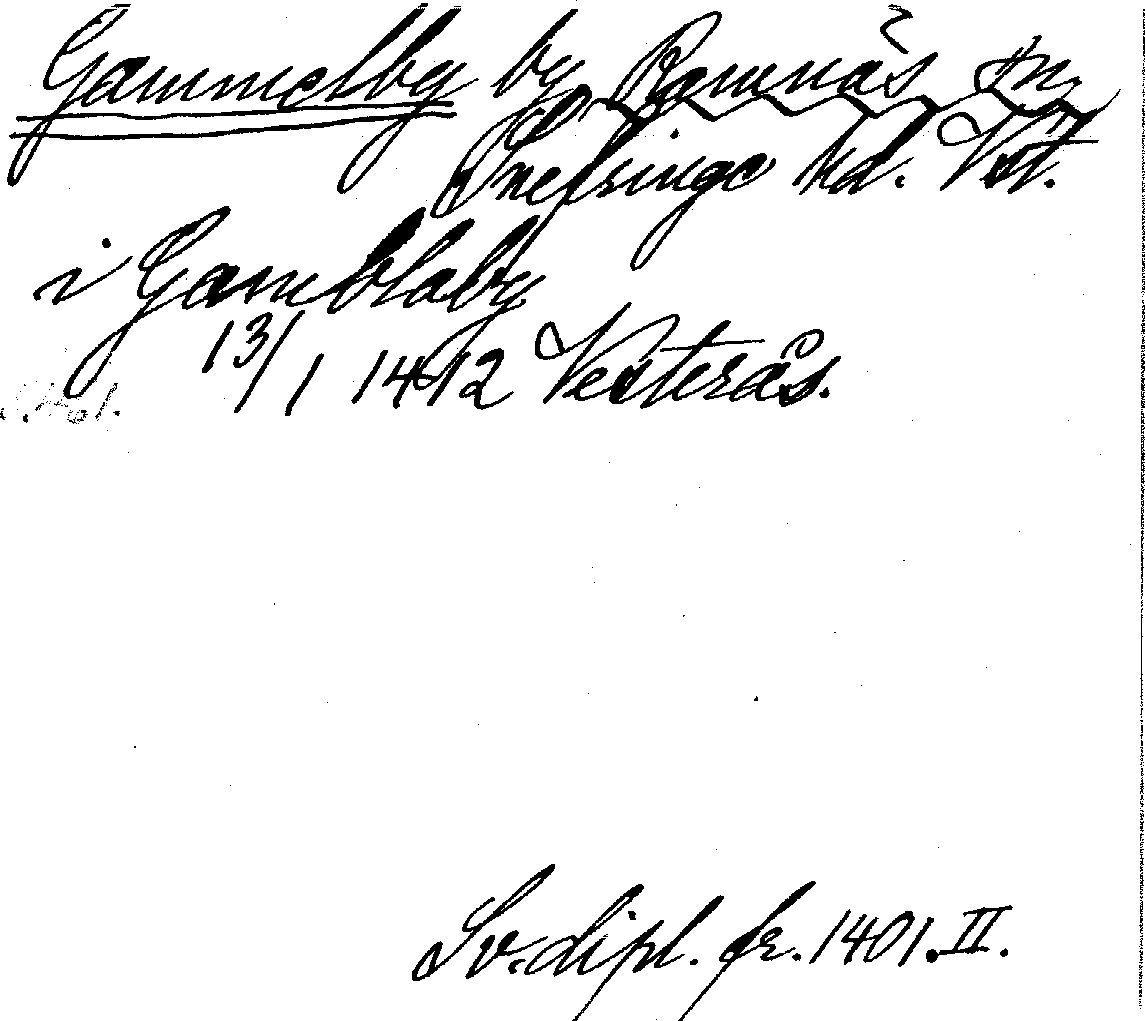 Gammelby by Ramnäs sn
Snefringe hd. Vstl.
i Gamblaby
13/1 1412 Vesterås.
Sv. dipl. fr. 1401. II.